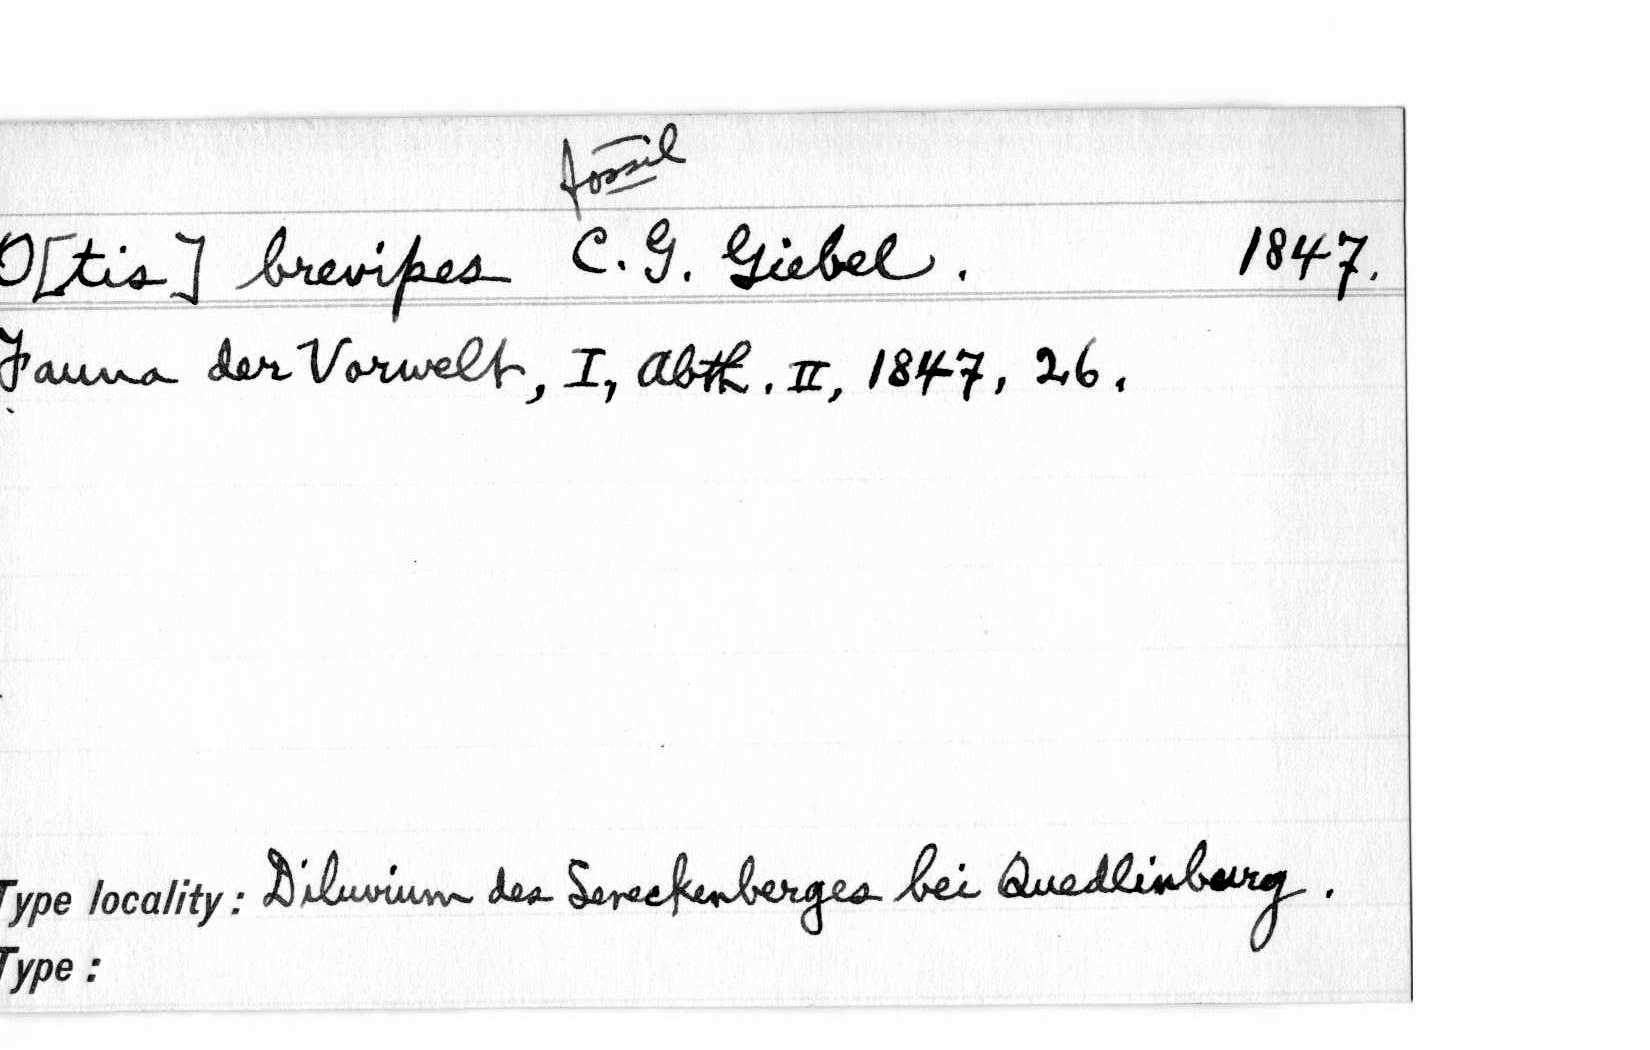 fossil
O[tis] brevipes C. G. Giebel. 1847.
Fauna der Vorwelt, I, Abth. II, 1847, 26.
Type locality: Diluvium des Sereckenberges bei Quedlinburg.
Type: